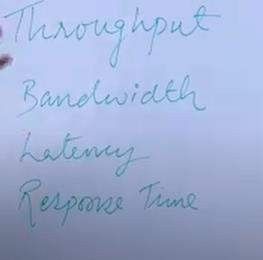 Throughput
Bandwidth
Latency
Response Time